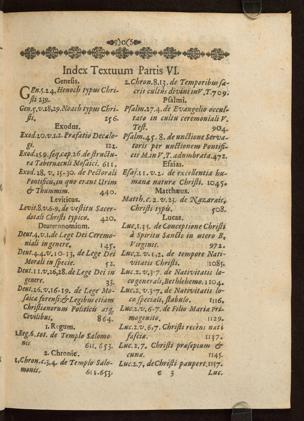 Index Textuum Partis VI.
Genesis.
Gen. 5. 24. Henoch typus Chri-
sti 239.
Gen. 5. v. 28. 29. Noach typus Chri-
sti, 256.
Exodus.
Exod. 20. v. 1. 2. Præfatio Decalo-
gi. 121.
Exod. 25. 9. seq. cap. 26. de structu-
ra Tabernaculi Mosaici. 611.
Exod. 28. v. 15-30. de Pectorali
Pontificis, in quo erant Urim
& Thummim. 440.
Leviticus.
Levit. 8. v. 6-9. de vestitu Sacer-
dotali Christi typico. 420.
Deuteronomium.
Deut. 4. v. 1. de Lege Dei Ceremo-
niali in genere, 145.
Deut. 4. 4. v. 10-13. de Lege Dei
Morali in specie. 52.
Deut. 11. v. 26. 28. de Lege Dei in
genere. 35.
Deut. 26. v. 16-19. de Lege Mo-
saica forensi & Legibus etiam
Christianorum Politicis atq.
Civilibus. 864.
1. Regum.
1. Reg. 6. tot. de Templo Salomo-
nis 611. 653.
2. Chronic.
2. Chron. c. 3. 4. de Templo Salo-
monis. 611. 653.
2. Chron. 8. 13. de Temporibus sa-
cris cultus divini in V. T. 709.
Psalmi.
Psalm. 27. 4. de Evangelio occul-
tato in cultu ceremoniali V.
Test. 904.
Psalm. 45. 8. de unctione Serva-
toris per unctionem Pontifi-
cis M. in V. T. adumbrata. 472.
Esaias.
Esaj. 11. v. 2. de excellentia hu-
manæ naturæ Christi. 1045.
Matthæus.
Matth. c. 2. v. 23. de Nazaræis,
Christi typis, 508.
Lucas.
Luc. 1. 35. de Conceptione Christi
à Spiritu Sancto in utero B.
Virginis. 972.
Luc. 2. v. 1. 2. de tempore Nati-
vitatis Christi. 1085.
Luc. 2. v. 3-7. de Nativitatis lo-
co generali, Bethlehemo. 1104.
Luc. 2. v. 3-7. de Nativitatis lo-
co speciali, stabulo. 1116.
Luc. 2. v. 6. 7. de Filio Mariæ Pri-
mogenito. 1129.
Luc. 2. v. 6. 7. Christi recens nati
fasciæ. 1137.
Luc. 2. 7. Christi præsepium &
cunæ. 1145.
Luc. 2. 7. de Christi paupert. 1157.
e 3 Luc.